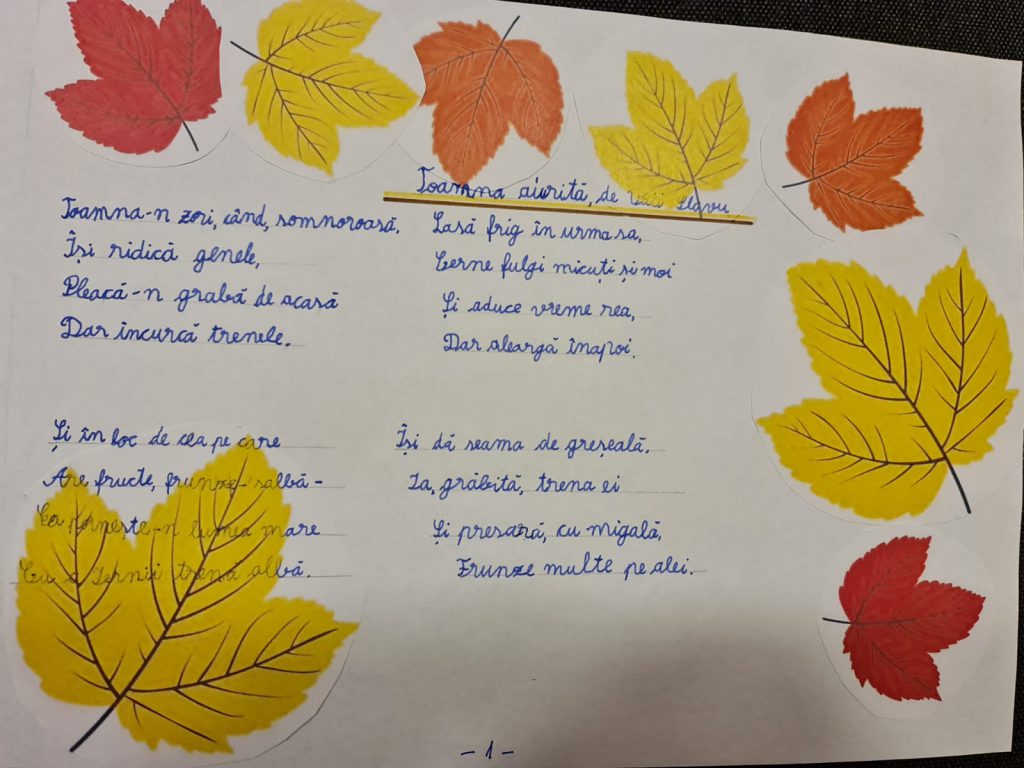 Toamna aiurită, de Vali Slavu
Toamna-n zori, când, somnoroasă,
Își ridică genele,
Pleacă-n grabă de acasă
Dar încurcă trenele.
Și în loc de cea pe care
Are fructe, frunze-salbă-
Ea pornește-n lumea mare
Cu a Iernii trenă albă.
Lasă frig în urma sa,
Cerne fulgi micuți și moi
Și aduce vreme rea,
Dar aleargă înapoi.
Își dă seama de greșeală,
Ia, grăbită, trena ei
Și presară, cu migală,
Frunze multe pe alei.
- 1 -